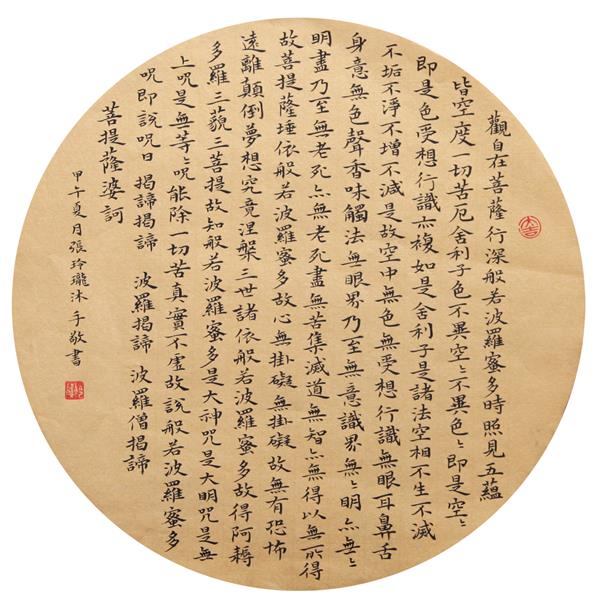 觀自在菩薩行深般若波羅蜜多時照見五蘊
皆空度一切苦厄舍利子色不異空〻不異色〻即是空〻
即是色受想行識亦複如是舍利子是諸法空相不生不滅
不垢不淨不增不減是故空中無色無受想行識無眼耳鼻舌
身意無色聲香味觸法無眼界乃至無意識界無〻明亦無〻
明盡乃至無老死亦無老死盡無苦集滅道無智亦無得以無所得
故菩提薩埵依般若波羅蜜多故心無掛礙無掛礙故無有恐怖
遠離顛倒夢想究竟涅槃三世諸依般若波羅蜜多故得阿耨
多羅三藐三菩提故知般若波羅蜜多是大神咒是大明咒是無
上咒是無等〻咒能除一切苦真實不虛故說般若波羅蜜多
咒即說咒曰 揭諦揭諦 波羅揭諦 波羅僧揭諦
菩提薩婆訶
甲午夏月張玲瓏沐手敬書